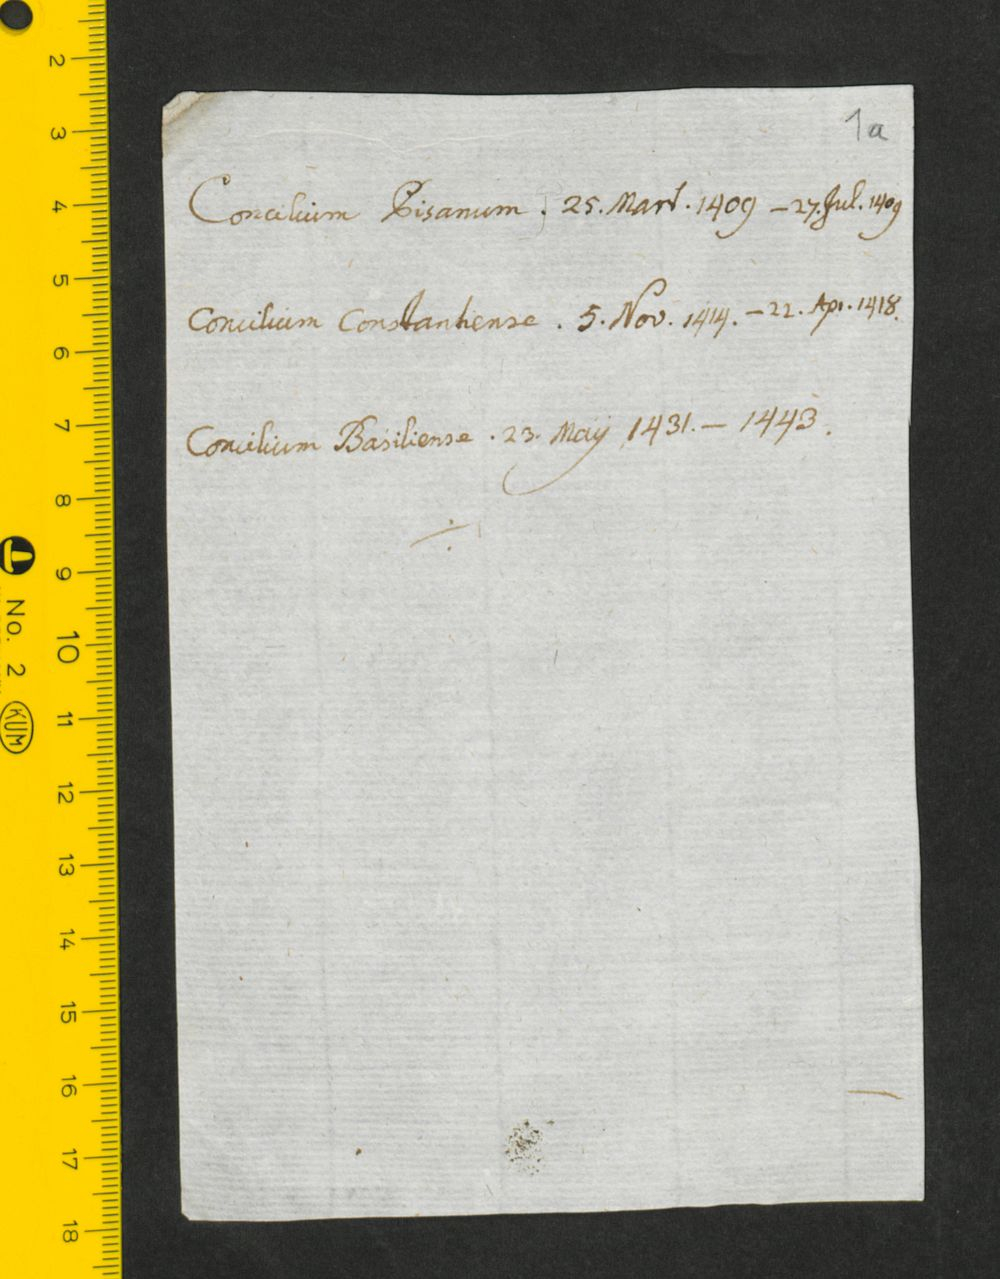 1a
Concilium Pisanum. 25. Mart. 1409 – 27. Jul. 1409
Concilium Constantiense. 5. Nov. 1414. – 22. Apr. 1418.
Concilium Basiliense. 23. Maÿ 1431. – 1443.
2
3
4
5
6
7
8
9
10
11
12
13
14
15
16
17
18
No. 2
KUM